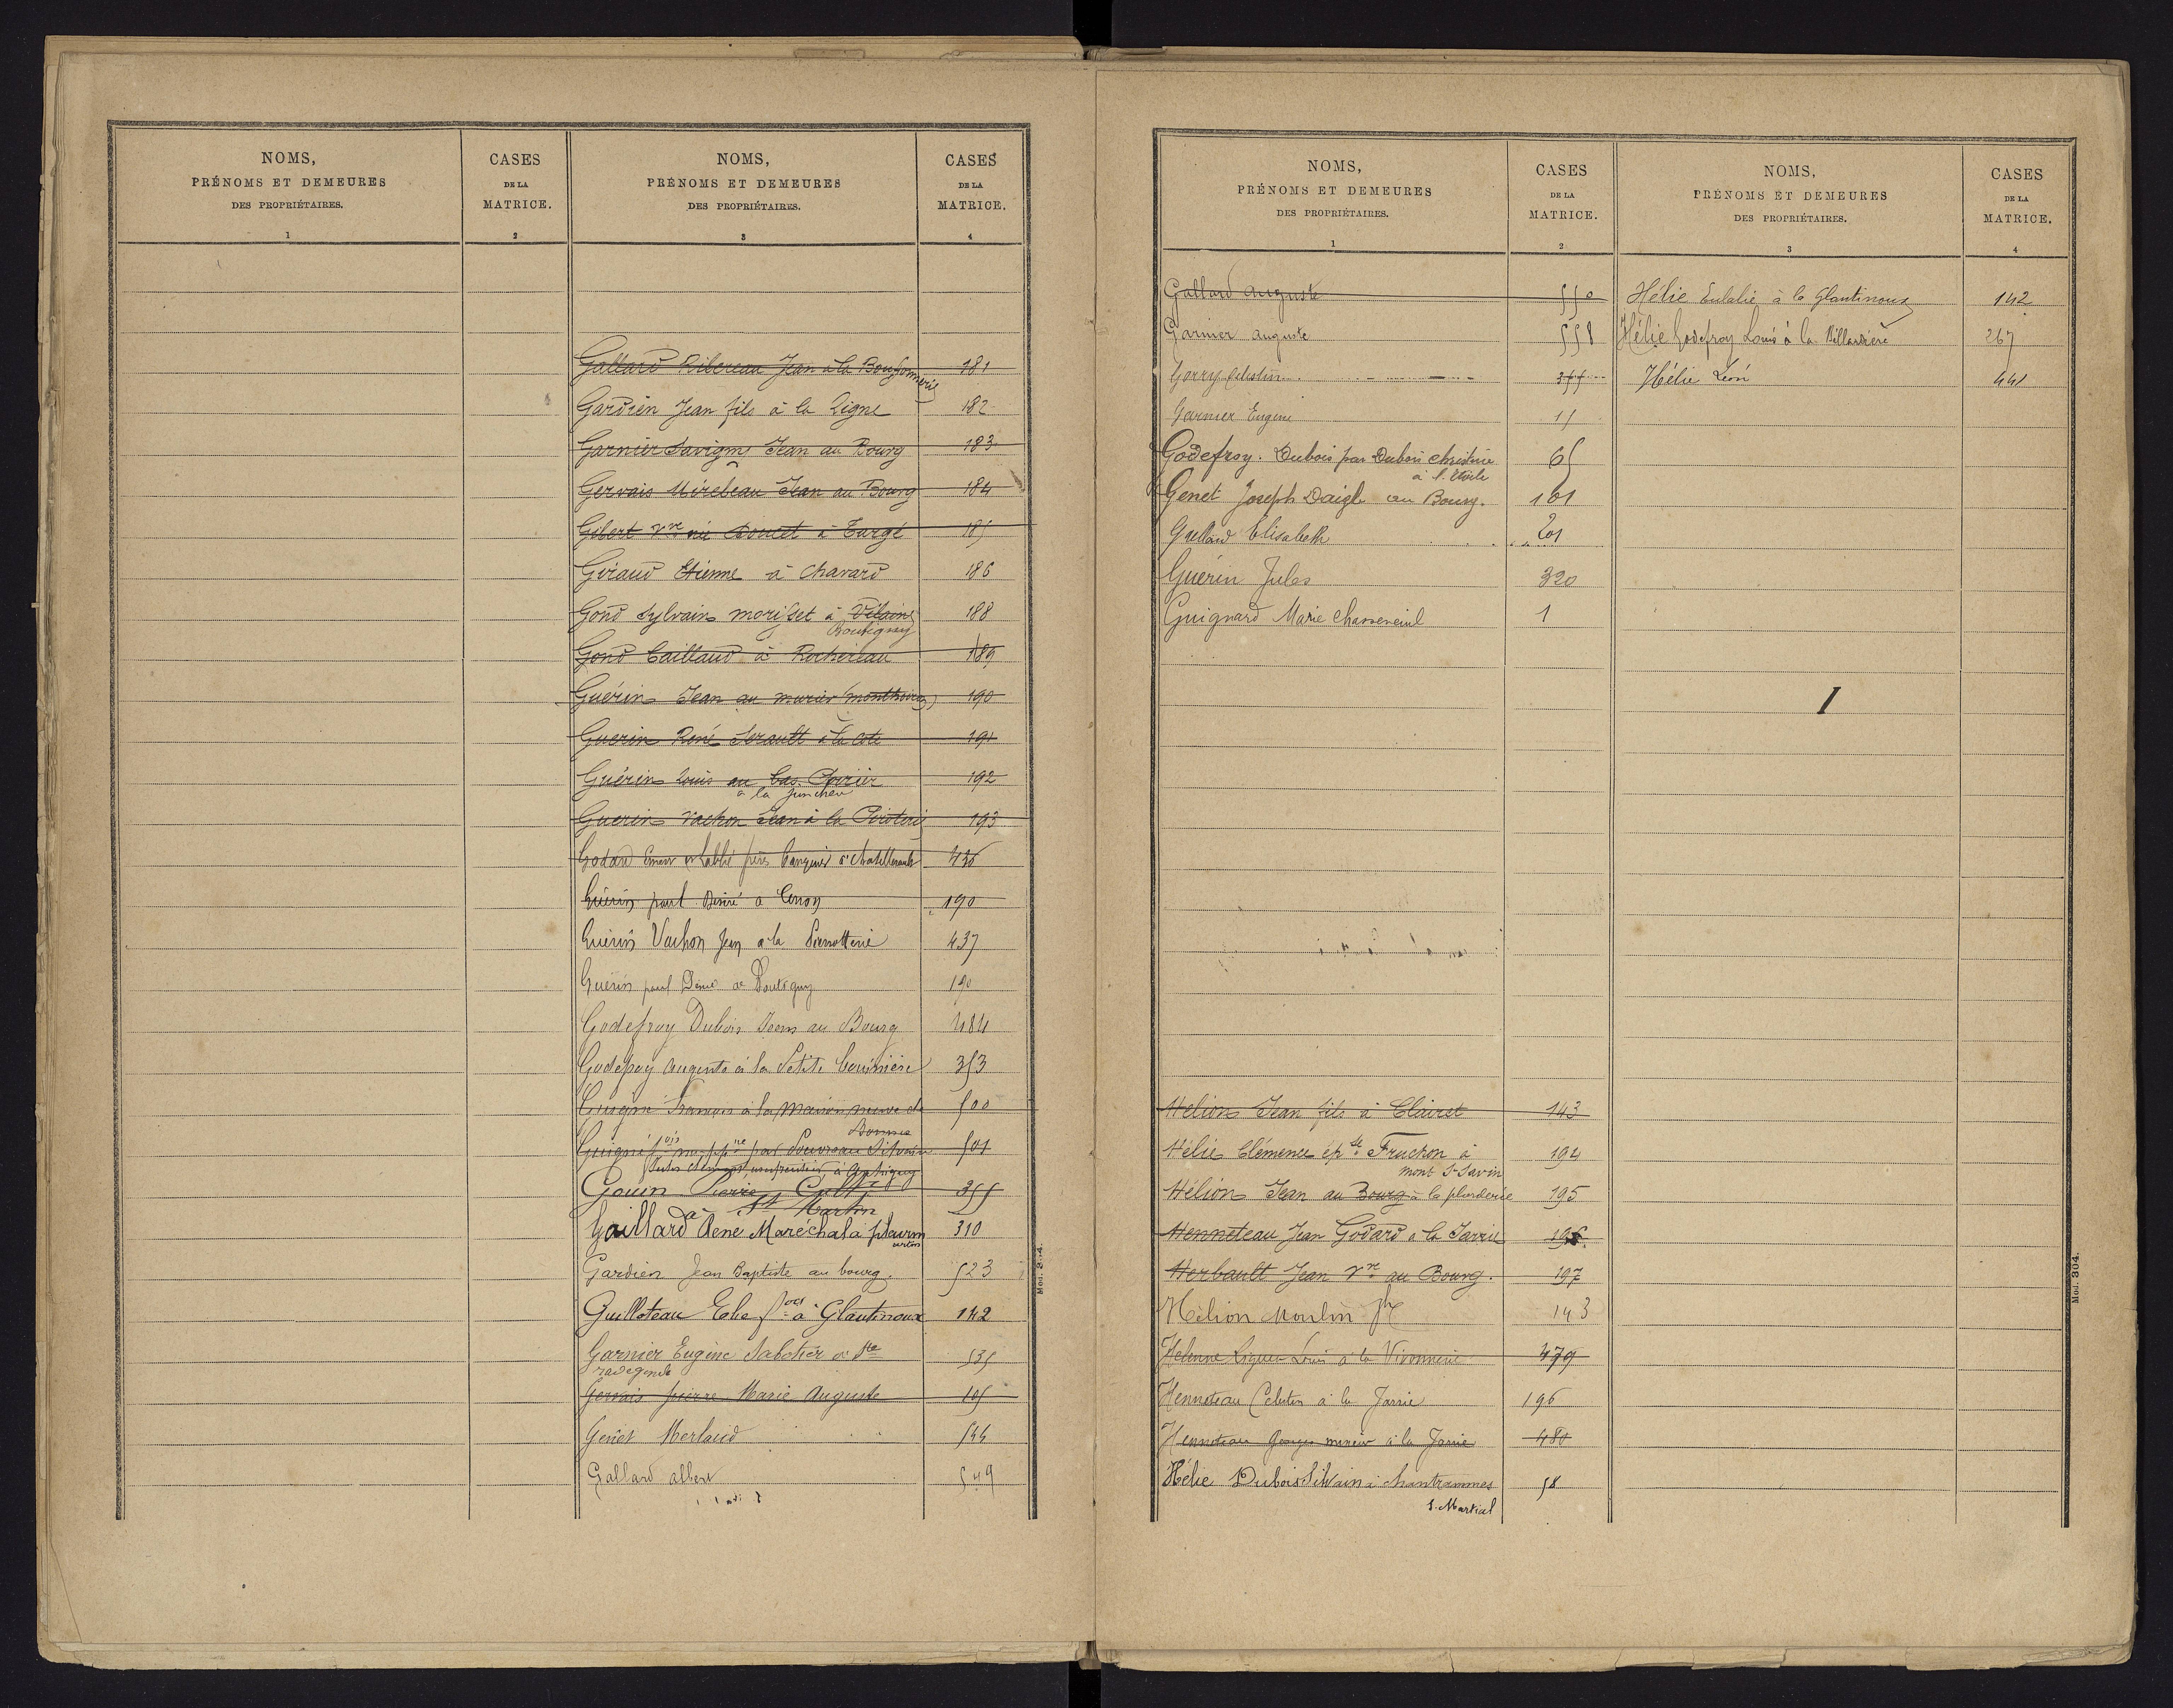 NOMS,
PRÉNOMS ET DEMEURES
DES PROPRIÉTAIRES.
1
CASES
DE LA
MATRICE.
2
NOMS,
PRÉNOMS ET DEMEURES
DES PROPRIÉTAIRES.
3
CASES
DE LA
MATRICE.
4
Gallard Ribereau Jean à la Bouffonnerie 181
Gardien Jean fils à la Ligne 182
Garnier Savigny Jean au Bourg 183
Gervais Mirebeau Jean au Bourg 184
Gibert Vve née Doucet à Targé 185
Giraud Etienne à Chavard 186
Gond Sylvain morisset à Vilaine 188
Boutigny
Gond Caillaud à Rochereau 189
Guérin Jean au murier (monthoiron) 190
Guerin René Serault à la cote 191
Guérin Louis au bas Poirier 192
à la
Guerin Vachon Jean à la 193
Godard et Labbé banquiers à Chatellerault 436
Guérin paul Désiré a Cenon 190
Guérin Vachon Jean a la 437
Guérin paul Désiré a Boutigny 190
Godefroy Dubois Jean au Bourg 484
Godefroy Auguste à la Petite 353
François à la maison neuve de 500
Bonnes
par Silvain 501
Gouin Pierre 355
à St Martin
Gaillard Rene Maréchal a 310
Gardien Jean Baptiste au bourg. 523
Guilloteau Elie à Glautinoux 142
Garnier Eugène Sabotier à Ste 535
radegonde
Gervais pierre Marie Auguste 105
Genet Merlaud 544
Gallard albert 549
Mod. 304.
NOMS,
PRÉNOMS ET DEMEURES
DES PROPRIÉTAIRES.
1
CASES
DE LA
MATRICE.
2
NOMS,
PRÉNOMS ET DEMEURES
DES PROPRIÉTAIRES.
3
CASES
DE LA
MATRICE.
4
Gallard auguste 550
Garnier auguste 558
Gorry Célestin 355
Garnier Eugene 15
Godefroy. Dubois par Dubois Christine 65
à l'Etoile
Genet Joseph Daigle au Bourg. 101
Grellard Elisabeth 201
Guérin Jules 320
Guignard Marie Chasseneuil 1
Hélion Jean fils à Clairet 143
Hélie Clémence ép. Fruchon à 194
mont St Savin
Hélion Jean au Bourg à la 195
Henneteau Jean Godard a la Jarrie 196
Herbault Jean Vve au Bourg. 197
Hélion Moulin 143
Louis à la Vivonnerie 479
Henneteau Célestin à la Jarrie 196
Henneteau Georges mineur à la Jarrie 480
Hélie Dubois Silvain à chantrammes 58
S. Martial
Hélie Eulalie à la Glautinoux 142
Hélie Godefroy Louis à la Billardière 267
Hélie Léon 441
I
Mod. 304.